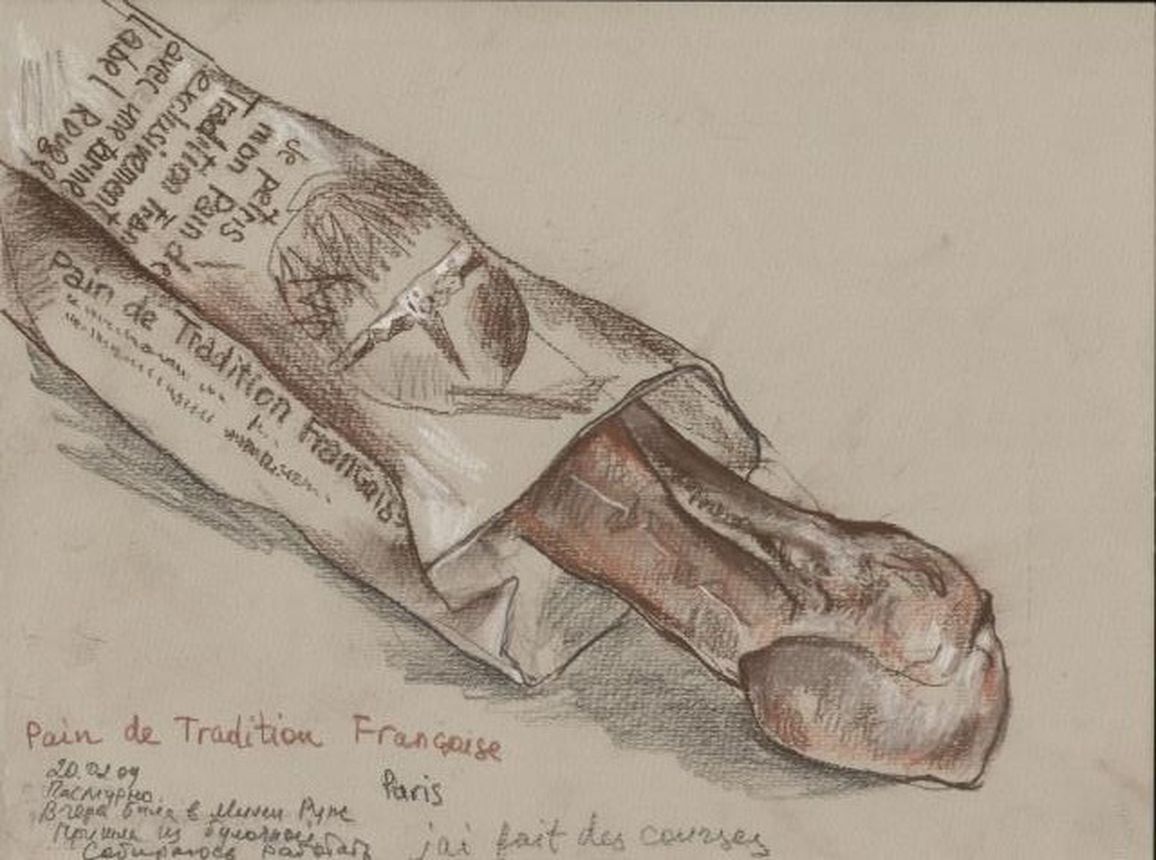 Je pétris
mon Pain de
Tradition Fran
exclusivement
avec une farine
Label Rouge
Pain de Tradition Français
Pain de Tradition Françoise
20.02.09
Пасмурно
Вчера была в
Пришла из булочной
Собираюсь работать
Paris
j'ai fait des courses